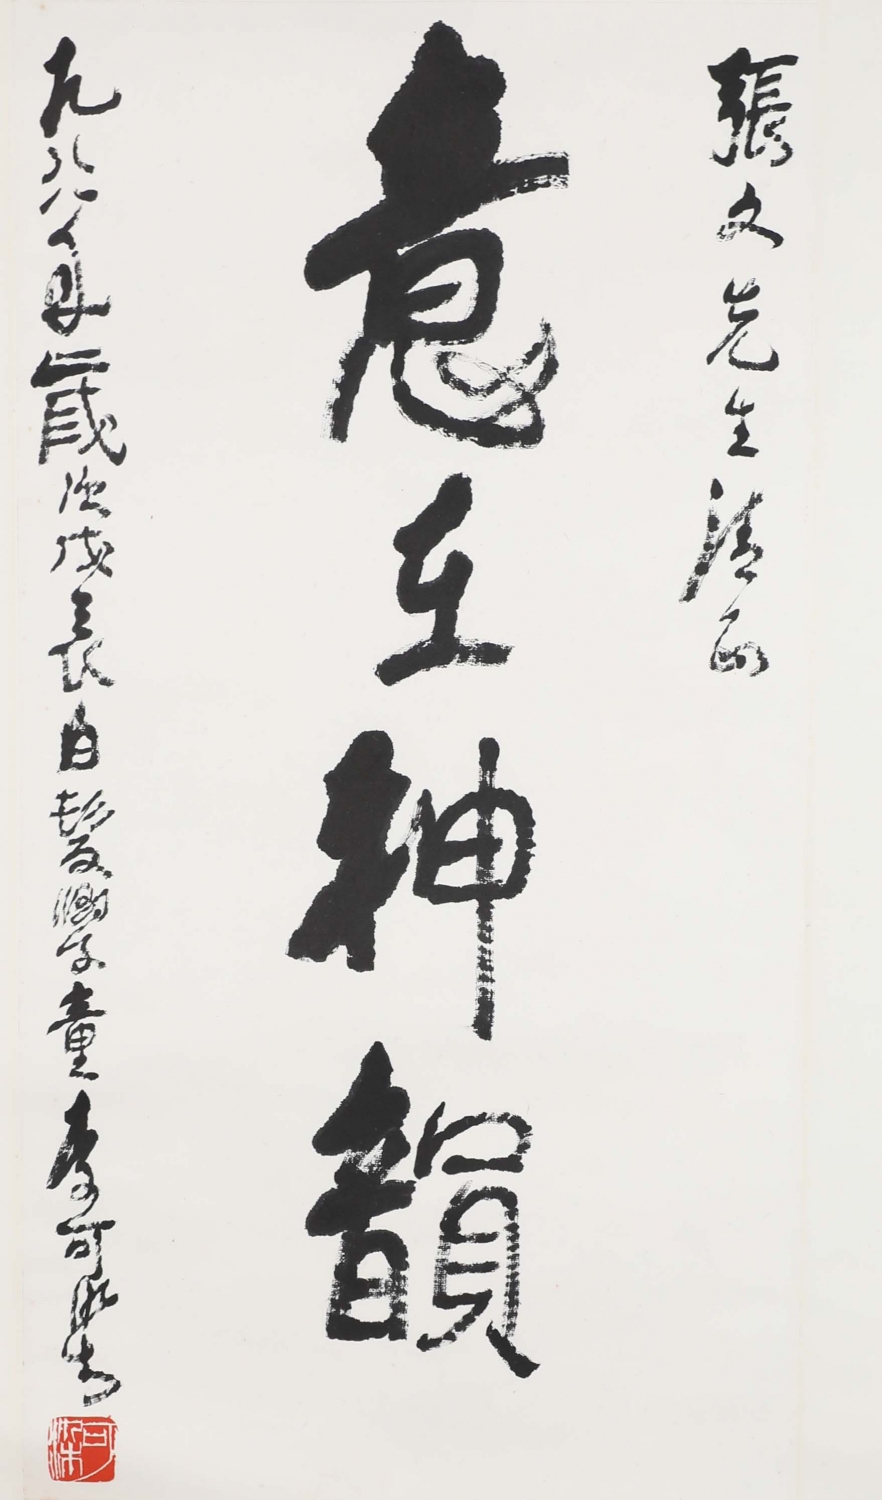 張文先生清正
意在神韻
一九八八年歲次戊辰白髮學童李可染書
可染